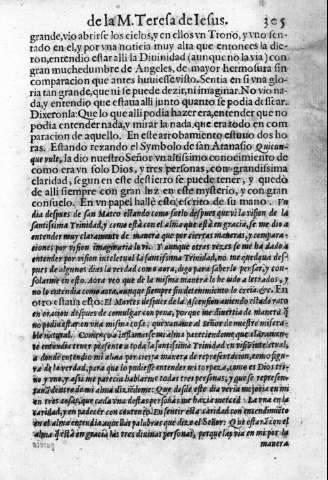 de la M. Teresa de Iesus. 305
grande, vio abrirse los cielos, y en ellos vn Trono, y vno sen-
tado en el, y por vna noticia muy alta que entonces la die-
ron, entendio estar alli la Diuinidad (aunque no la via) con
gran muchedumbre de Angeles, de mayor hermosura sin
comparacion que antes huuiesse visto. Sentia en si vna glo-
ria tan grande, que ni se puede dezir, ni imaginar. No vio na-
da, y entendio que estaua alli junto quanto se podia dessear.
Dixeronla: Que lo que alli podia hazer era, entender que no
podia entender nada, y mirar la nada, que era todo en com-
paracion de aquello. En este arrobamiento estuuo dos ho-
ras. Estando rezando el Symbolo de san Atanasio Quicun-
que vult, la dio nuestro Señor vn altissimo conocimiento de
como era vn solo Dios, y tres personas, con grandissima
claridad, segun en este destierro se puede tener, y quedó
de alli siempre con gran luz en este mysterio, y con gran
consuelo. En vn papel hallè esto escrito de su mano. Vn
dia despues de san Mateo estando como suelo despues que vi la vision de la
santissima Trinidad, y como està con el alma que està en gracia, se me dio a
entender muy claramente de manera que por ciertas maneras, y compara-
ciones por vision imaginaria lo vi. Y aunque otras vezes se me ha dado a
entender por vision intelectual la santissima Trinidad, no me quedaua des-
pues de algunos dias la verdad como aora, digo para saberlo pensar, y con-
solarme en esto. Aora veo que de la misma manera lo he oido a letrados, y
no lo entendia como aora, aunque siempre sin detenimiento lo creia. En
otro estaua esto: El Martes despues de la Ascension auiendo estado rato
en oracion despues de comulgar con pena, porque me diuertia de manera q̃
no podia estar en vna misma cosa: quexauame al Señor de nuestro misera-
ble natural. Començò a inflamarse mi alma pareciendome que claramen-
te entendia tener presente a toda la santissima Trinidad en vision intelectual,
a donde entendio mi alma por cierta manera de representacion, como figu-
ra de la verdad, para que lo pudiesse entender mi torpeza, como es Dios tri-
no y vno, y assi me parecia hablarme todas tres personas, y que se represen-
tauan dentro de mi alma diziendome: Que desde este dia veria mejoria en mi
en tres cosas, que cada vna destas personas me hazia merced. La vna en la
caridad, y en padecer con contento. En sentir esta caridad con encendimiento
en el alma entendia aquellas palabras que dize el Señor: Que estaran con el
alma q̃ està en gracia las tres diuinas personas, porque las via en mi por la
manera